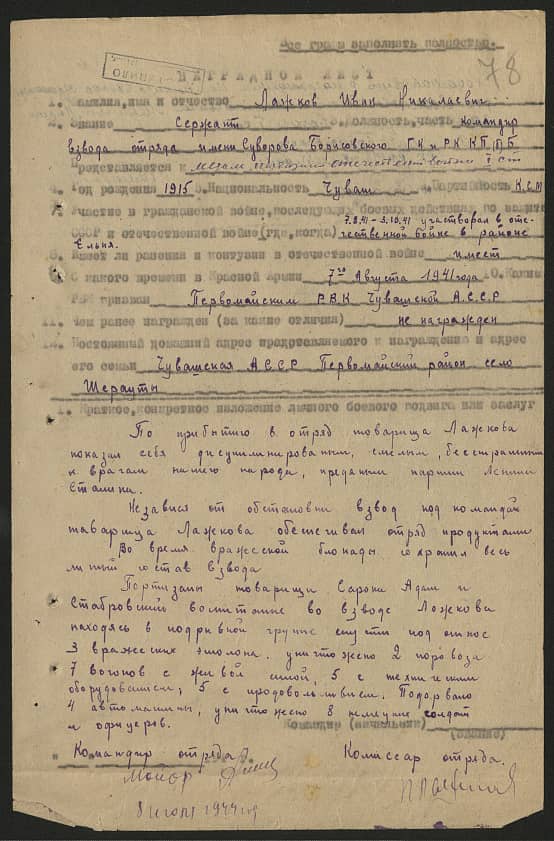 Все графы выполнять полностью.
78
НАГРАДНОЙ ЛИСТ
1. Фамилия, имя и отчество Лажков Иван Николаевич
2. Звание Сержант должность, часть командир
взвода отряда имени Суворова Борисовского ГК и РК КП/б/Б
Представляется к
4. Год рождения 1915 5. Национальность Чуваш 6. Партийность
7. Участие в гражданской войне, последующих боевых действиях по защите
СССР и отечественной войне (где, когда) 7.8.41 – 5.10.41 участвовал в оте-
чественной войне в районе
Ельня.
8. Имеет ли ранения и контузии в отечественной войне имеет
9. С какого времени в Красной Армии 7го Августа 1941 года 10. Каким
РВК призван Первомайским РВК Чувашской АССР
11. Чем ранее награжден (за какие отличия) не награжден
12. Постоянный домашний адрес представляемого к награждению и адрес
его семьи Чувашская АССР Первомайский район село
Шерауты
1. Краткое, конкретное изложение личного боевого подвига или заслуг
По прибытию в отряд товарища Лажкова
показал себя дисциплинированым, смелым, бесстрашным
к врагам нашего народа, преданым партии Ленина
Сталина.
Независя от обстановки взвод под командой
товарища Лажкова обеспечивал отряд продуктами
Во время вражеской блокады сохранил весь
личный состав взвода
Партизаны товарищи Сароки Адам и
Стабровский воспитаные во взводе Лажкова
находясь в подрывной группе спустили под откос
3 вражеских эшолона. уничтожено 2 поровоза
7 вогонов с живой силой, 5 с техническим
оборудованием, 5 с продовольствием. Подорвано
4 автомашины, уничтожено 8 немецких солдат
и офицеров.
Командир (начальник)
(звание)
Командир отряда Комиссар отряда.
Майор
8 1944 год